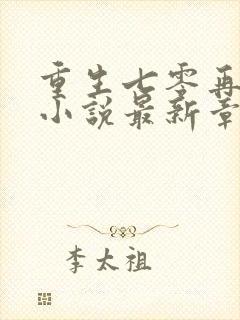 重生七零再
小说最新章
李太祖